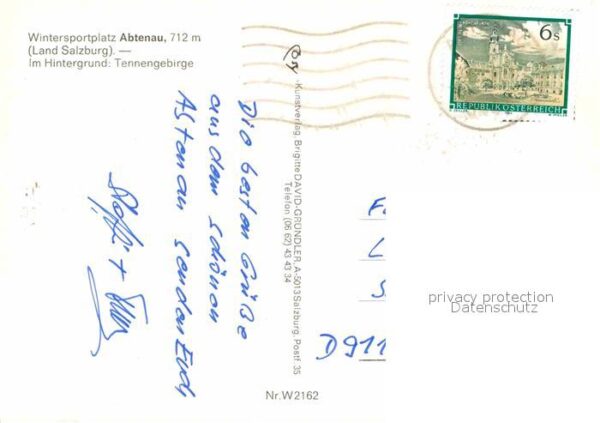 Wintersportplatz Abtenau, 712 m
(Land Salzburg). —
Im Hintergrund: Tennengebirge
Die besten Grüße
aus dem schönen
Abtenau senden Euch
Kunstverlag Brigitte DAVID-GRÜNDLER, A-5013 Salzburg, Postf. 35
Telefon (06 62) 43 43 34
Nr. W 2162
6 S
REPUBLIK ÖSTERREICH
F
L
S
D 911
privacy protection
Datenschutz